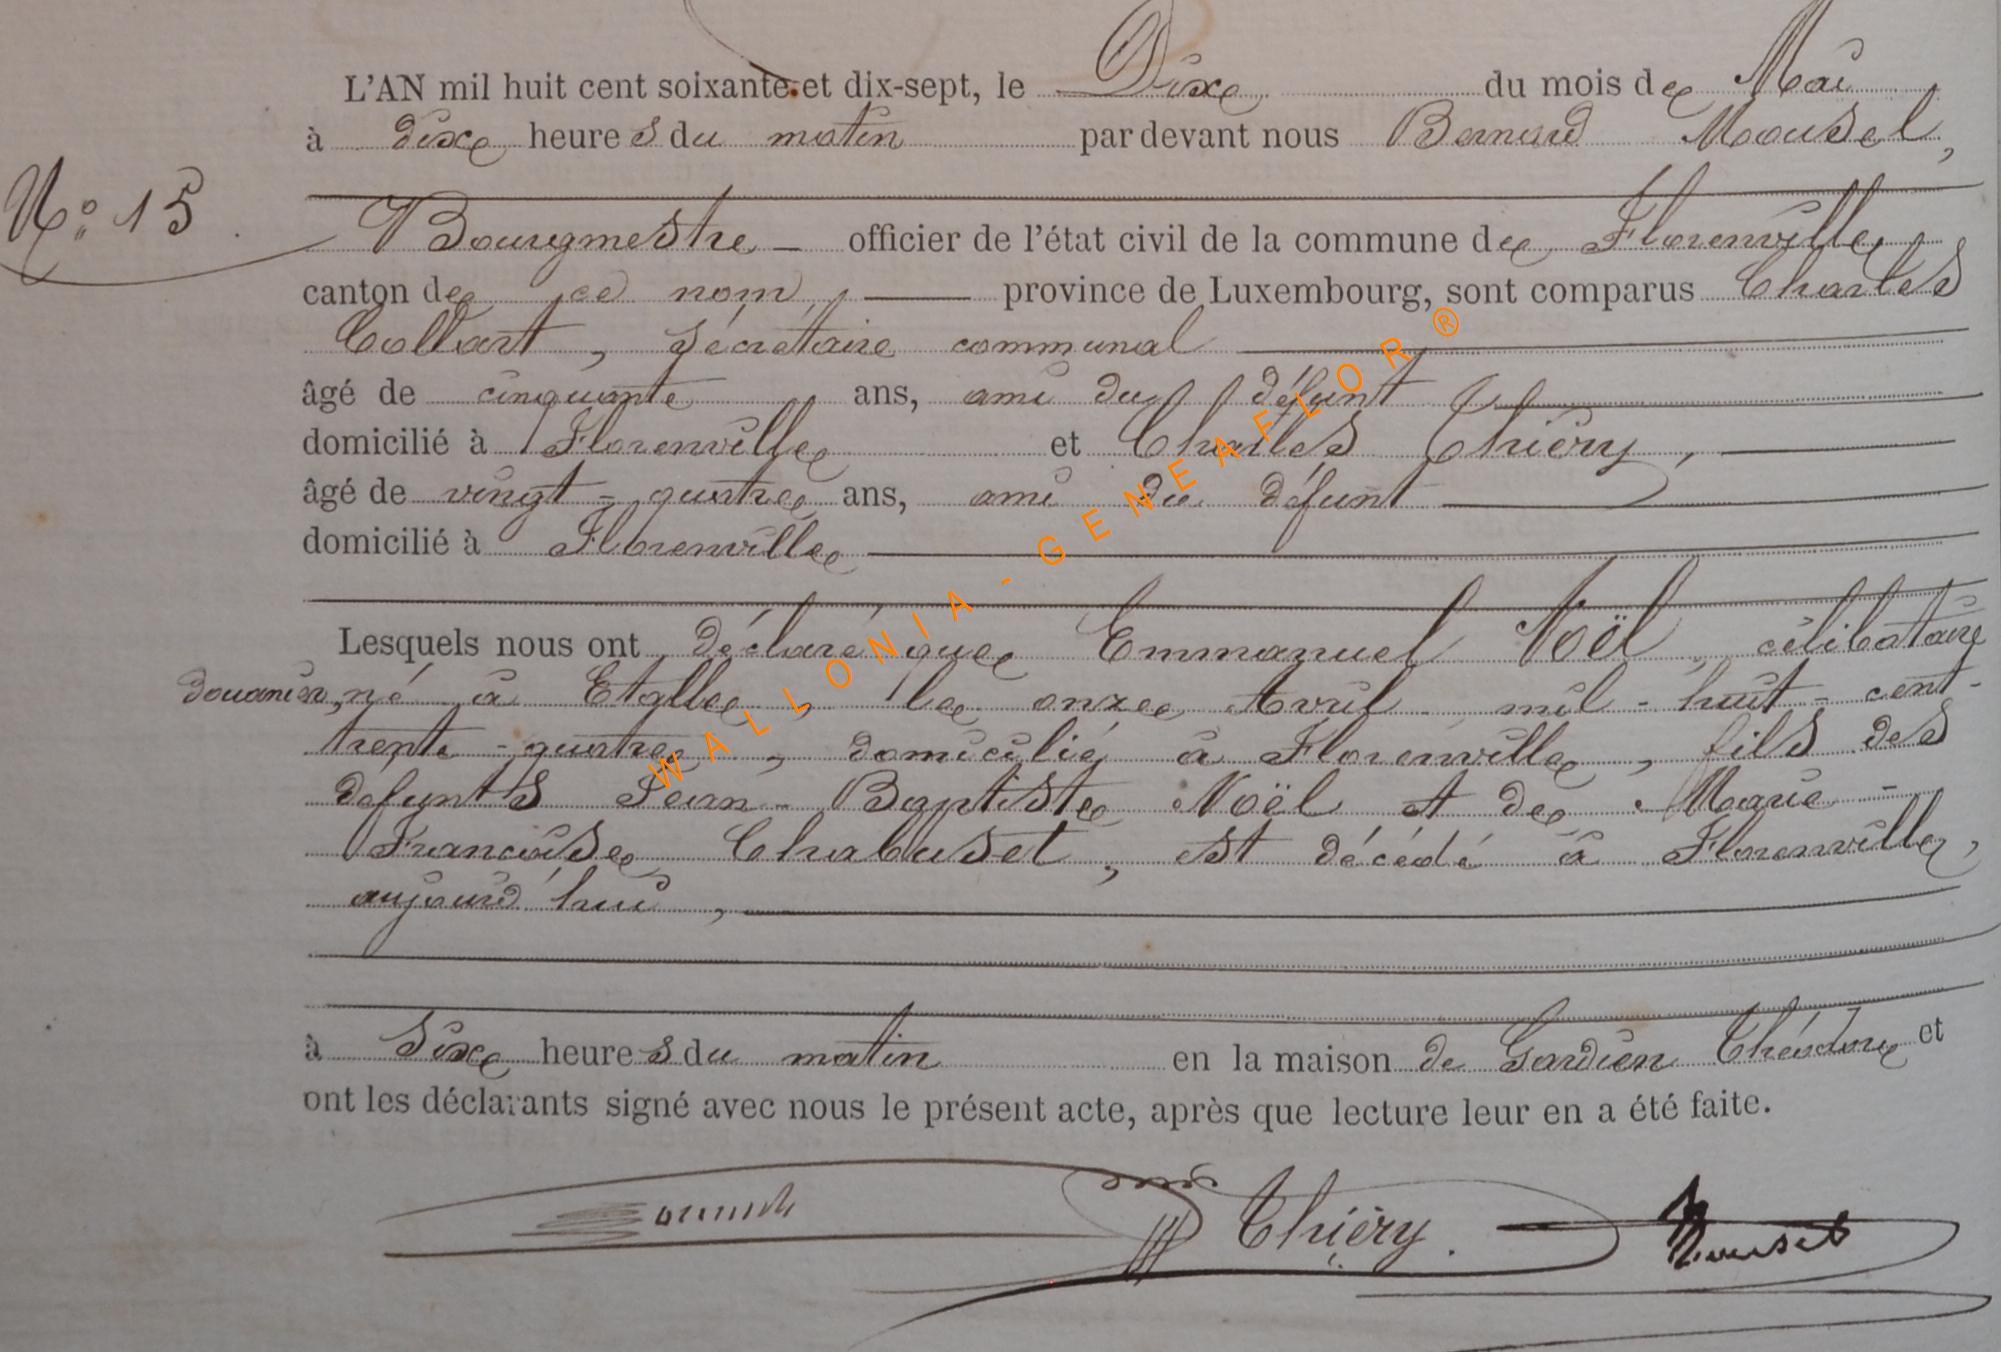 L'AN mil huit cent soixante et dix-sept, le Dixe du mois de Mai
à dixe heures du matin par devant nous Bernard Mousel,
N° 15
Bourgmestre - officier de l'état civil de la commune de Florenville
canton de ce nom, province de Luxembourg, sont comparus Charles
Collart, sécrétaire communal
âgé de cinquante ans, ami du défunt
domicilié à Florenville et Charles Thiéry,
âgé de vingt-quatre ans, ami du défunt
domicilié à Florenville
Lesquels nous ont déclaré que Emmanuel Noël, célibataire
douanier, né à Etalle, le onze Avril mil-huit-cent-
trente-quatre, domicilié à Florenville, fils des
défunts Jean-Baptiste Noël et de Marie-
Françoise Chabuset, est décédé à Florenville,
aujourd'hui,
à Sixe heures du matin en la maison de Gardien Théodore et
ont les déclarants signé avec nous le présent acte, après que lecture leur en a été faite.
Thiéry. Mousel
WALLONIA-GENEAFLOR®